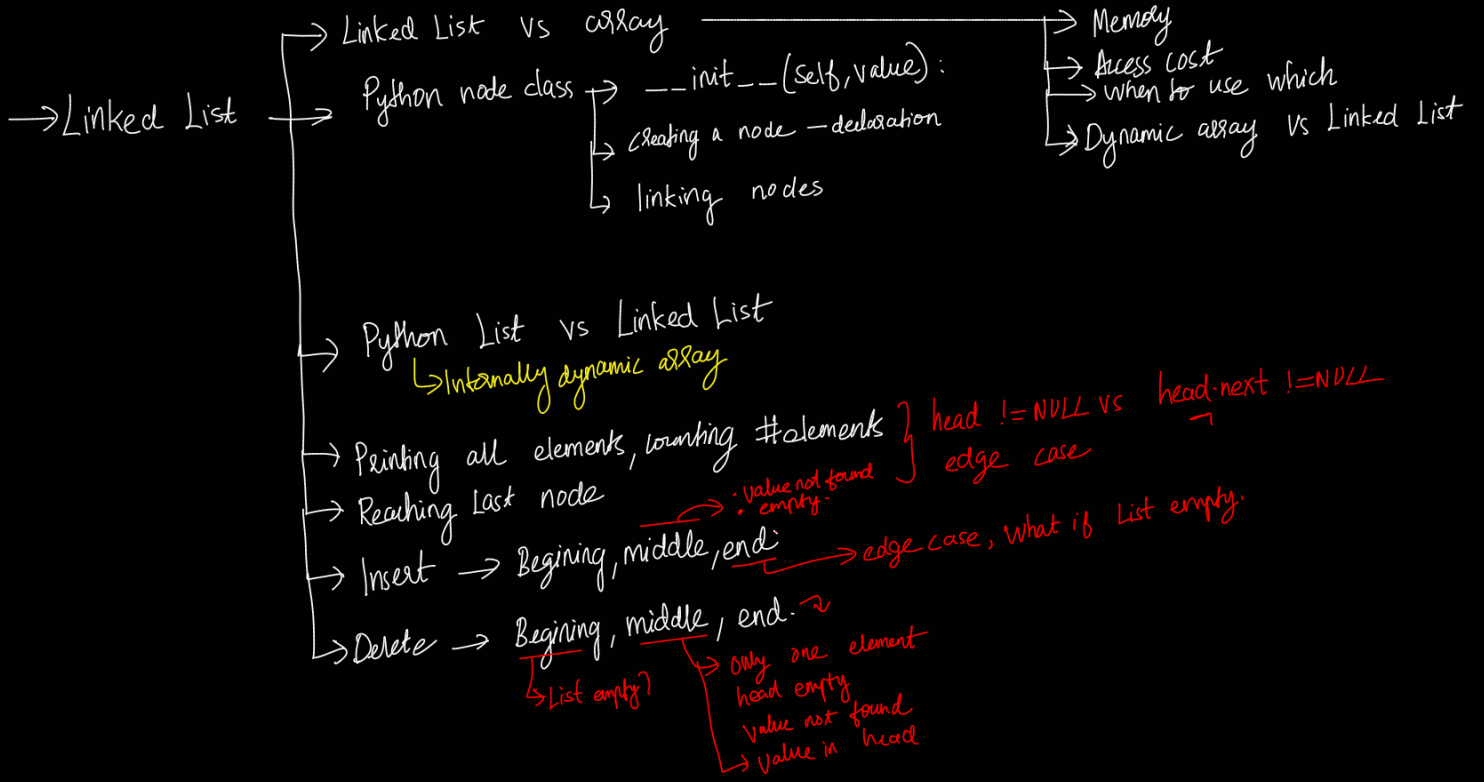 Linked List vs array
Memory
Access cost
when to use which
Dynamic array vs Linked List
Linked List
Python node class
__init__(self, value):
creating a node - declaration
linking nodes
Python List vs Linked List
Internally dynamic array
Printing all elements, counting #elements
head != NULL vs head.next != NULL
edge case
Reaching Last node
: value not found
. empty.
Insert → Begining, middle, end.
edge case, What if List empty.
Delete → Begining, middle, end.
List empty?
only one element
head empty
value not found
value in head